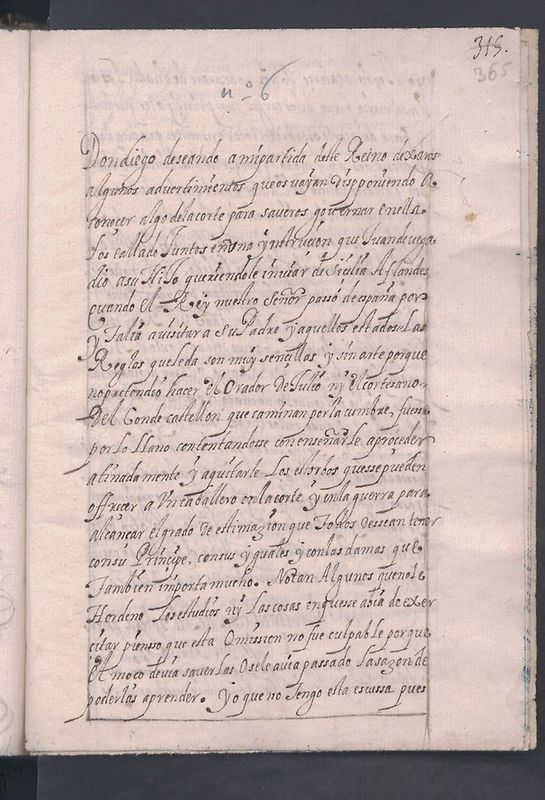 315.
365
nº 6
Don diego deseando a mi partida deste Reino dexaros
algunos advertimientos que os vayan disponiendo a
conocer algo de la corte para saveros governar en ella
Los e allado Juntos en una ynstrucion que Juan de vega
dio a su Hijo queriendole inviar de Sicilia A flandes
quando el Rey nuestro Señor passó de españa por
ytalia a visitar a su Padre y aquellos estados. Las
Reglas que le da son muy sencillas y sin arte porque
no pretendio hacer el Orador De Julio ny el cortesano
Del Conde castellon que caminan por la cumbre, fuesse
por Lo Llano contentandosse con enseñarle aproceder
atinadamente y aquitarle Los estorbos que se pueden
offrecer a Un caballero en la corte y en la guerra para
alcançar el grado de estimazion que Todos dessean tener
con su Principe, con sus yguales y con las damas que
Tambien importa mucho. Notan Algunos que no le
Hordeno Los estudios ny Las cosas en que se abia de exer
citar pienso que esta Omission no fue culpable porque
el moço devia saverlas O se le avia passado La sazon de
poderlas aprender. yo que no Tengo esta escussa pues